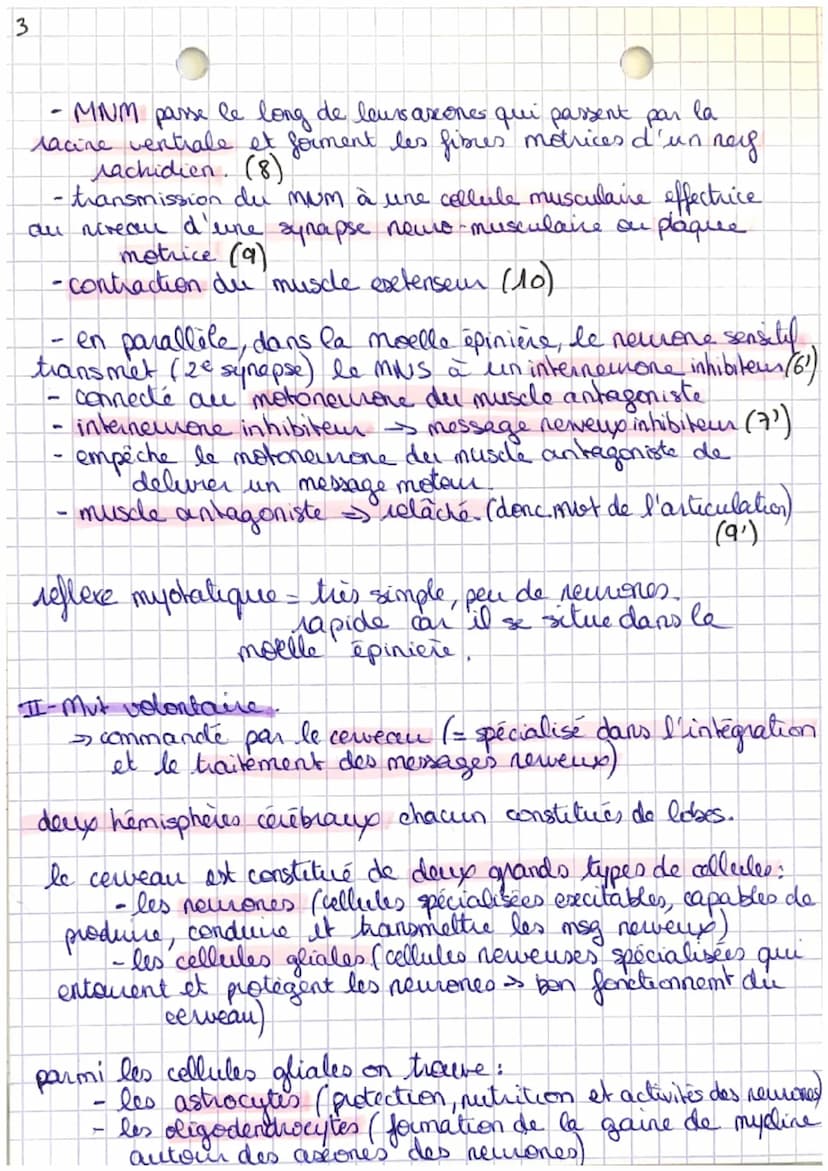 3
- MNM passe le long de leurs axones qui passent par la
racine ventrale et forment les fibres motrices d'un nerf
rachidien. (8)
- transmission du mnm à une cellule musculaire effectrice
au niveau d'une synapse neuro-musculaire ou plaque
motrice (9)
- contraction du muscle extenseur (10)
- en parallèle, dans la moelle épinière, le neurone sensitif
transmet (2e synapse) le MNS à un interneurone inhibiteur (6')
- connecté au motoneurone du muscle antagoniste
- interneurone inhibiteur → message nerveux inhibiteur (7')
- empêche le motoneurone du muscle antagoniste de
délivrer un message moteur.
- muscle antagoniste ⇒ relâché. (donc mvt de l'articulation)
(9')
reflexe myotatique = très simple, peu de neurones.
rapide car il se situe dans la
moelle épinière.
II - Mvt volontaire.
⇒ commandé par le cerveau (= spécialisé dans l'intégration
et le traitement des messages nerveux)
deux hémisphères cérébraux chacun constitués de lobes.
le cerveau est constitué de deux grands types de cellules :
- les neurones (cellules spécialisées excitables, capables de
produire, conduire et transmettre les msg nerveux)
- les cellules gliales (cellules nerveuses spécialisées qui
entourent et protègent les neurones → bon fonctionnemt du
cerveau)
parmi les cellules gliales on trouve :
- les astrocytes (protection, nutrition et activités des neurones)
- les oligodendrocytes (formation de la gaine de myéline
autour des axones des neurones)